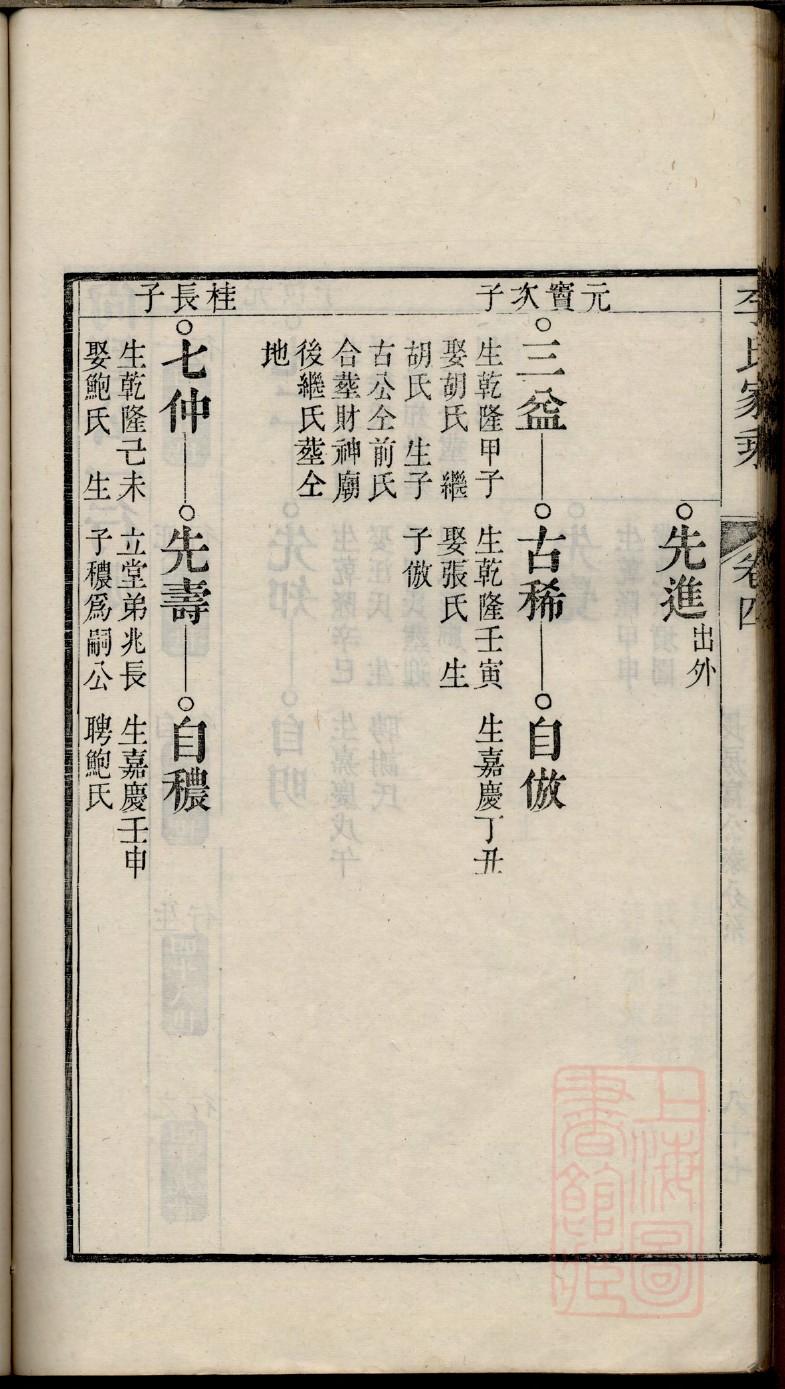 李氏家乘
卷四
先進
出外
元寶次子
三益
生乾隆甲子
娶胡氏 繼
胡氏 生子
古公仝前氏
合塟財神廟
後繼氏塟仝
地
古稀
生乾隆壬寅
娶張氏 生
子倣
自倣
生嘉慶丁丑
桂長子
七仲
生乾隆己未
娶鮑氏 生
先壽
立堂弟兆長
子穠爲嗣公
自穠
生嘉慶壬申
聘鮑氏
上海圖書館藏